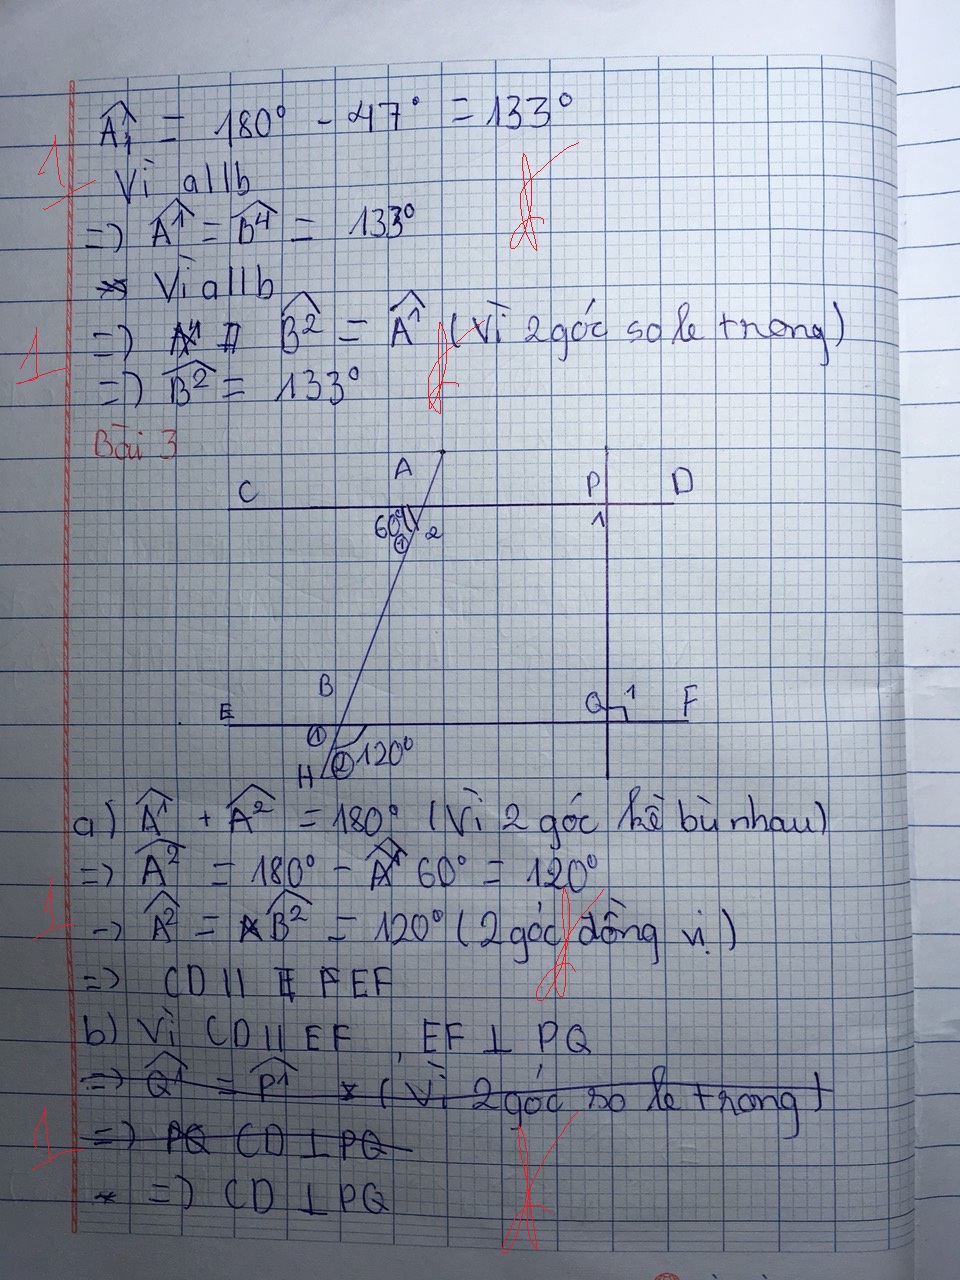 Â1 = 180° - 47° = 133°
1
Vì a||b
=> Â1 = B̂4 = 133°
Vì a||b
=> B̂2 = Â1 (vì 2 góc so le trong)
1
=> B̂2 = 133°
Bài 3
A
C
P
D
60°
1
2
1
B
E
Q
1
F
1
2
120°
H
a) Â1 + Â2 = 180° (Vì 2 góc kề bù nhau)
=> Â2 = 180° - 60° = 120°
1
-> Â2 = B̂2 = 120° (2 góc đồng vị)
=> CD || EF
b) Vì CD || EF, EF ⊥ PQ
=> Q̂1 = P̂1 (Vì 2 góc so le trong)
1
=> PQ CD ⊥ PQ
* => CD ⊥ PQ